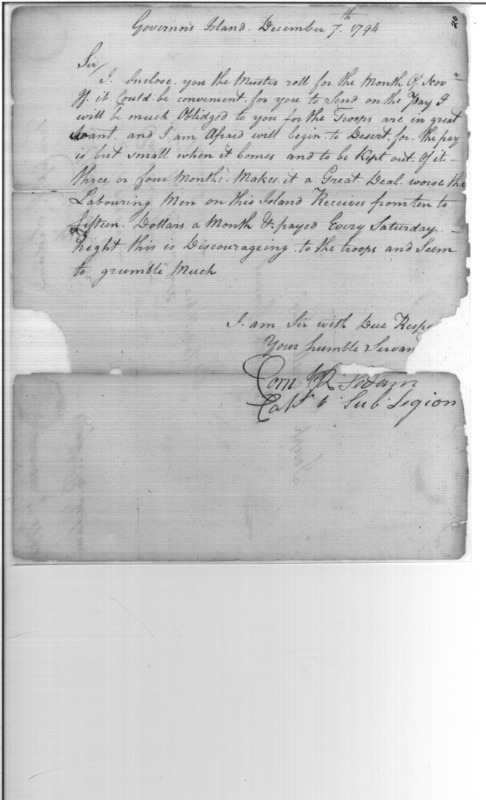 Governors Island. December 7th. 1794
20
Sir
I Inclose you the Muster roll for the Month Of Nov
If it Could be convenient for you to Send on the Pay I
will be much Oblidged to you for the Troops are in great
Want, and I am Afraid will begin to Desert. for the pay
is but small when it Comes and to be Kept out Of it
three or four Months. Makes it a Great Deal worse the
Labouring Men on this Island Receives from ten to
fifteen Dollars a Month & payed Every Saturday
Night this is Discourageing to the troops and Seem
to grumble Much
I am Sir with Due Resp
Your humble Servan
Corn R
Capt 1 Sub Legion